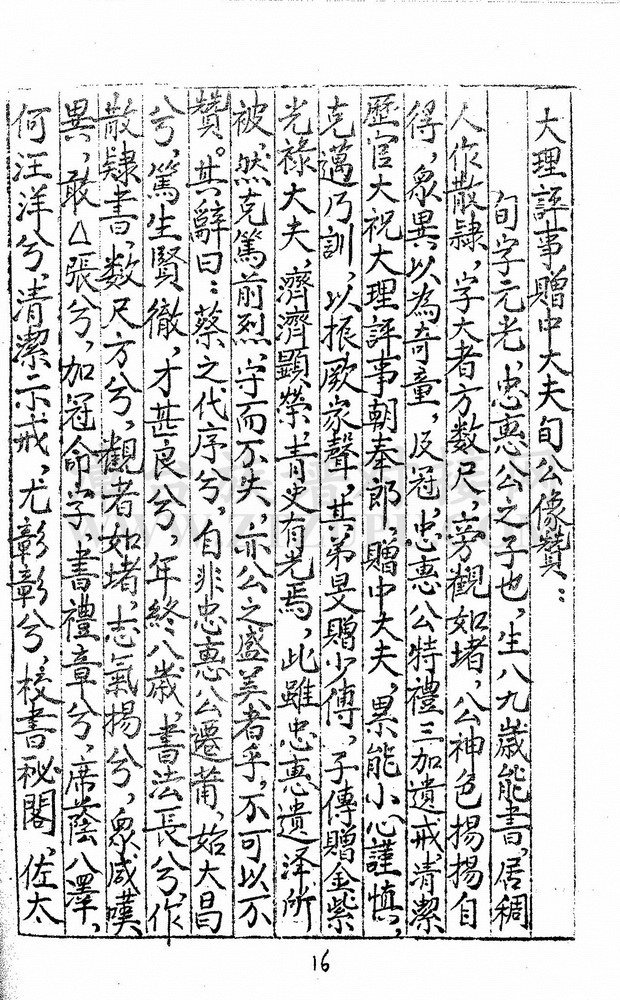 大理評事贈中大夫旬公像贊：
旬字元光，忠惠公之子也，生八九歲能書，居稠
人作散隸，字大者方數尺，旁觀如堵，公神色揚揚自
得，衆異以為奇童，及冠，忠惠公特禮三加遺戒清潔
歷官大祝大理評事朝奉郎，贈中大夫，累能小心謹慎，
克邁乃訓，以振厥家聲，其弟旻贈少傅，子傳贈金紫
光祿大夫，濟濟顯榮，青史有光焉，此雖忠惠遺澤所
被，然克篤前烈，守而不失，亦公之盛美者乎，不可以不
贊。其辭曰：蔡之代序兮，自非忠惠公遷莆，始大昌
兮，篤生賢徹，才甚良兮，年終八歲，書法長兮，作
散隸書，數尺方兮，觀者如堵，志氣揚兮，衆咸嘆
異，敢△張兮，加冠命字，書禮章兮，席蔭八澤，
何汪洋兮，清潔示戒，尤彰彰兮，校書秘閣，佐太
16